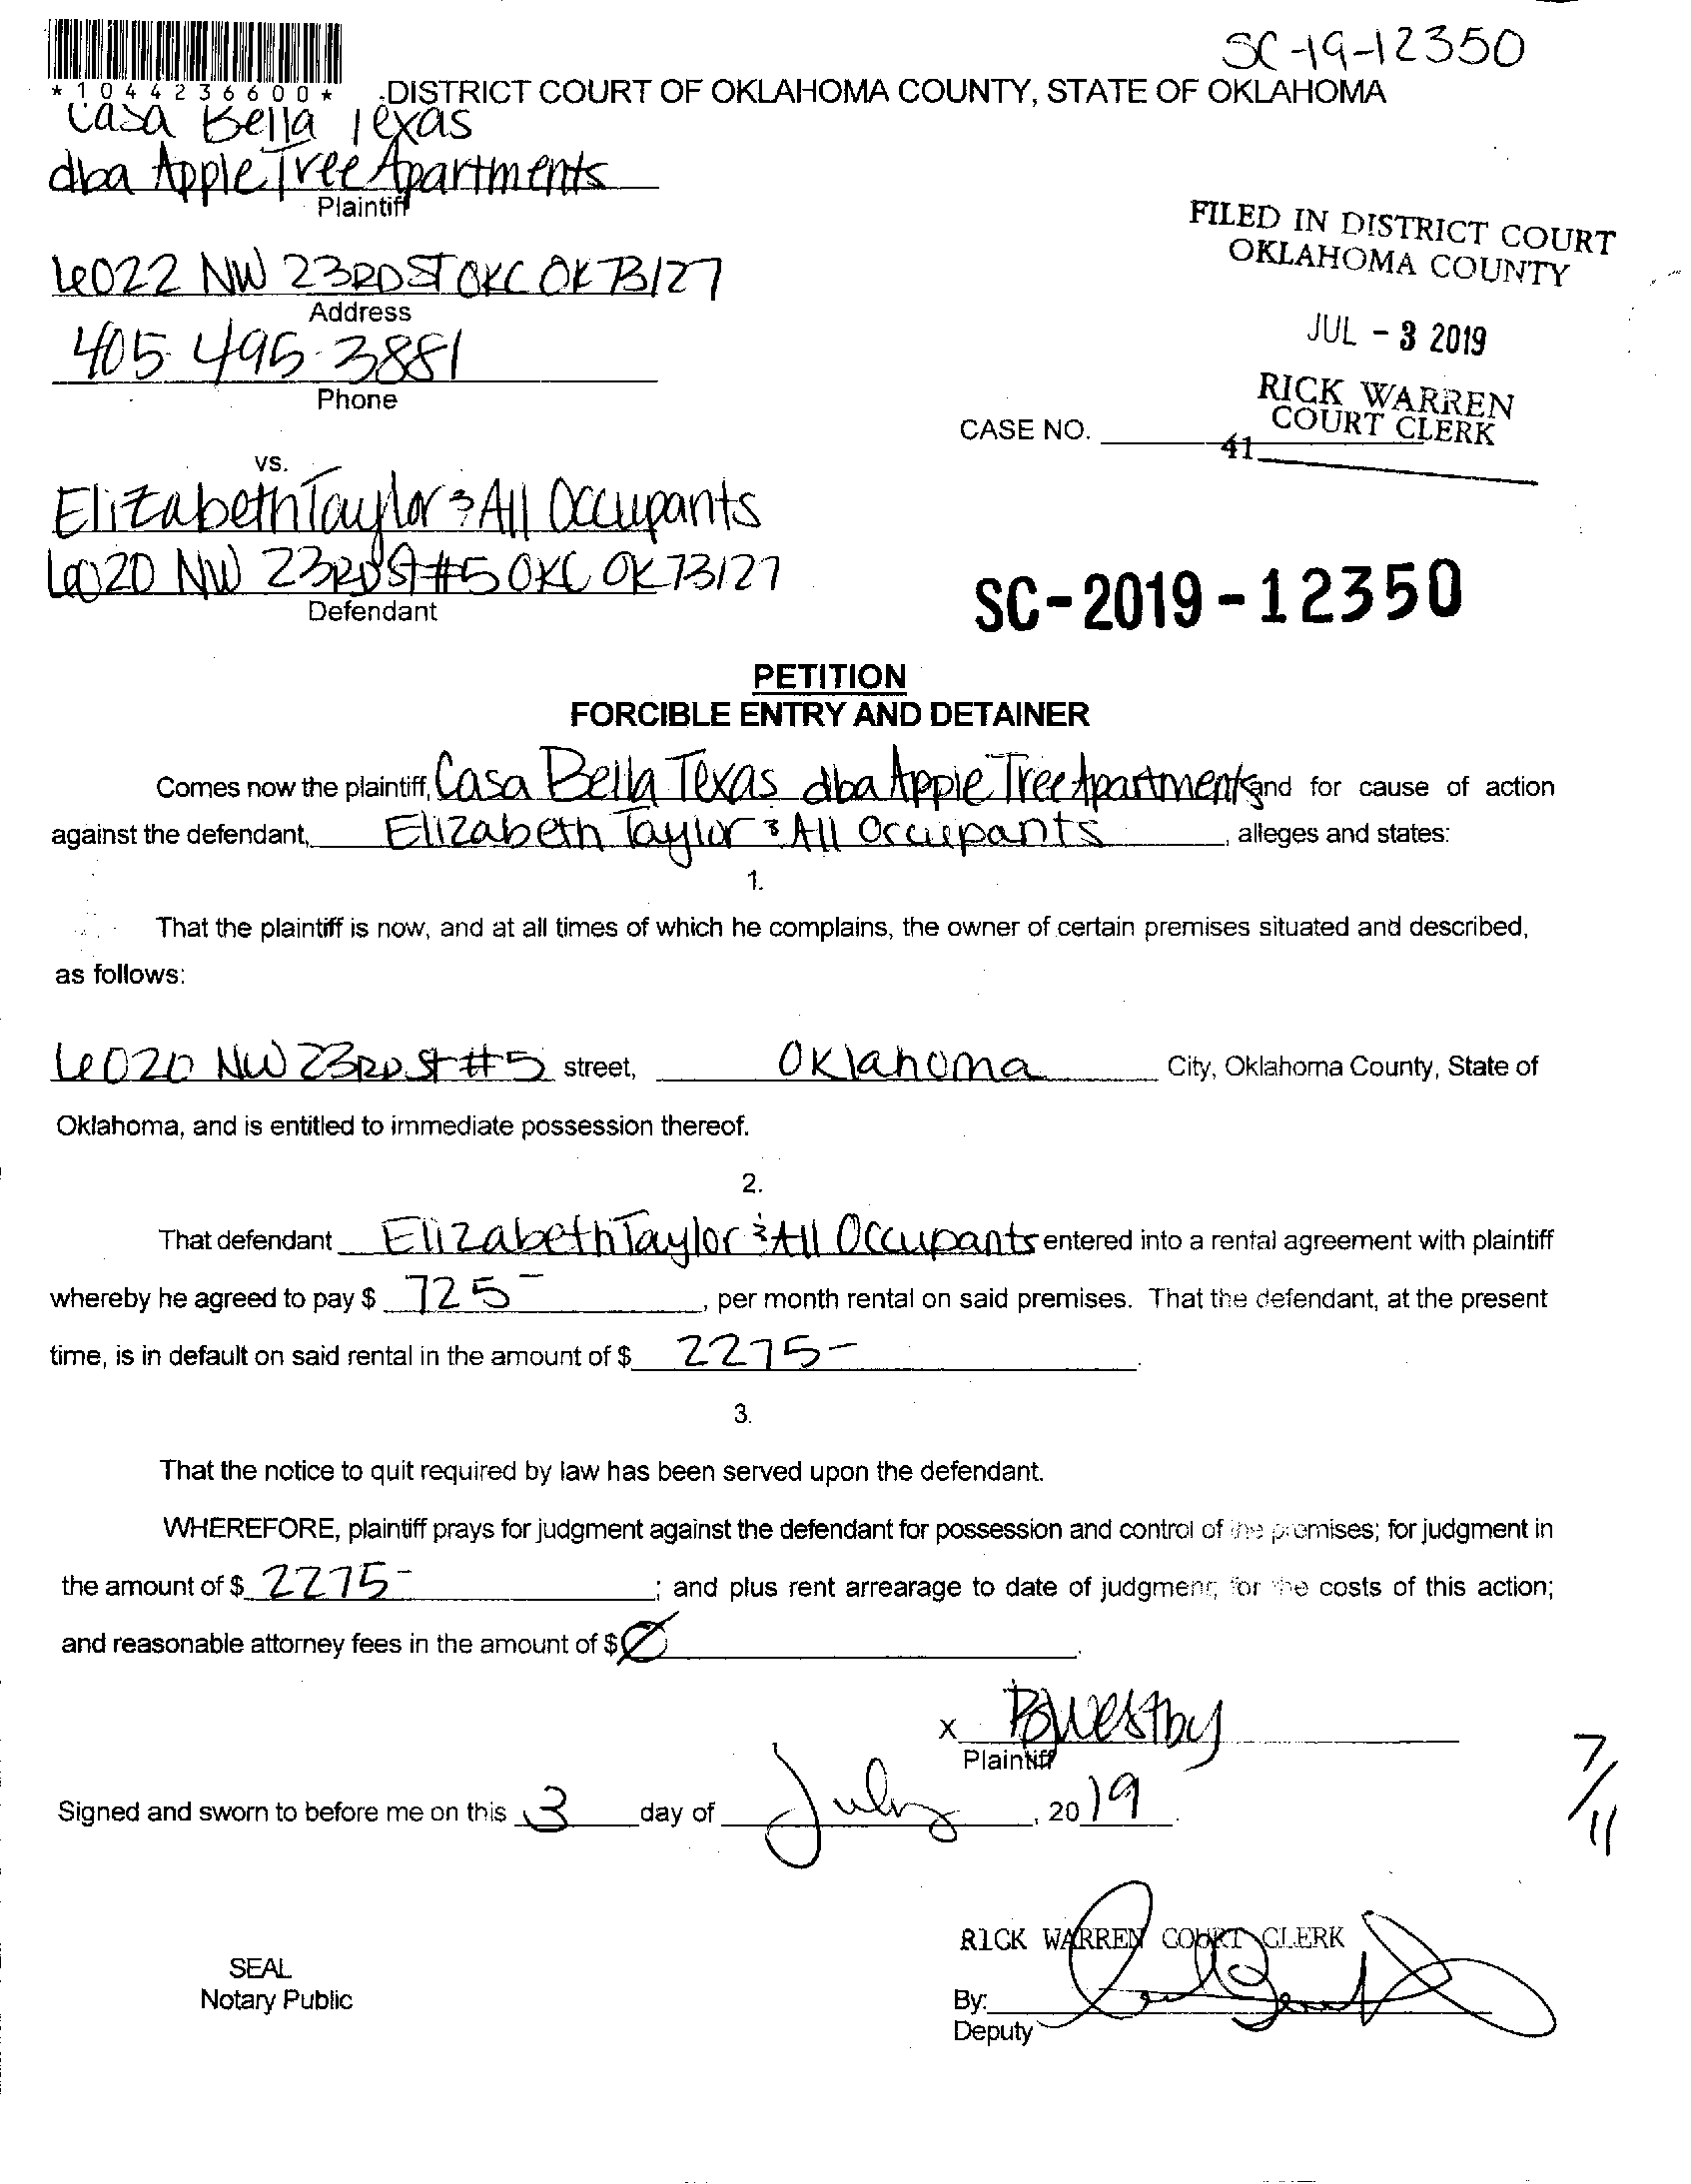 SC-19-12350
*1044236600*
DISTRICT COURT OF OKLAHOMA COUNTY, STATE OF OKLAHOMA
Casa Bella Texas
dba Apple Tree Apartments
Plaintiff
6022 NW 23RD ST OKC OK 73127
Address
405-495-3881
Phone
FILED IN DISTRICT COURT
OKLAHOMA COUNTY
JUL - 3 2019
RICK WARREN
COURT CLERK
41
CASE NO.
vs.
Elizabeth Taylor & All Occupants
6020 NW 23RD St #5 OKC OK 73127
Defendant
SC-2019-12350
PETITION
FORCIBLE ENTRY AND DETAINER
Comes now the plaintiff, Casa Bella Texas dba Apple Tree Apartments and for cause of action
against the defendant, Elizabeth Taylor & All Occupants, alleges and states:
1.
That the plaintiff is now, and at all times of which he complains, the owner of certain premises situated and described,
as follows:
6020 NW 23RD St #5 street, Oklahoma City, Oklahoma County, State of
Oklahoma, and is entitled to immediate possession thereof.
2.
That defendant Elizabeth Taylor & All Occupants entered into a rental agreement with plaintiff
whereby he agreed to pay $ 725-, per month rental on said premises. That the defendant, at the present
time, is in default on said rental in the amount of $ 2275-.
3.
That the notice to quit required by law has been served upon the defendant.
WHEREFORE, plaintiff prays for judgment against the defendant for possession and control of the premises; for judgment in
the amount of $ 2275-; and plus rent arrearage to date of judgment; for the costs of this action;
and reasonable attorney fees in the amount of $ Ø.
x
Plaintiff
7/11
Signed and sworn to before me on this 3 day of July, 2019.
RICK WARREN COURT CLERK
SEAL
Notary Public
By:
Deputy